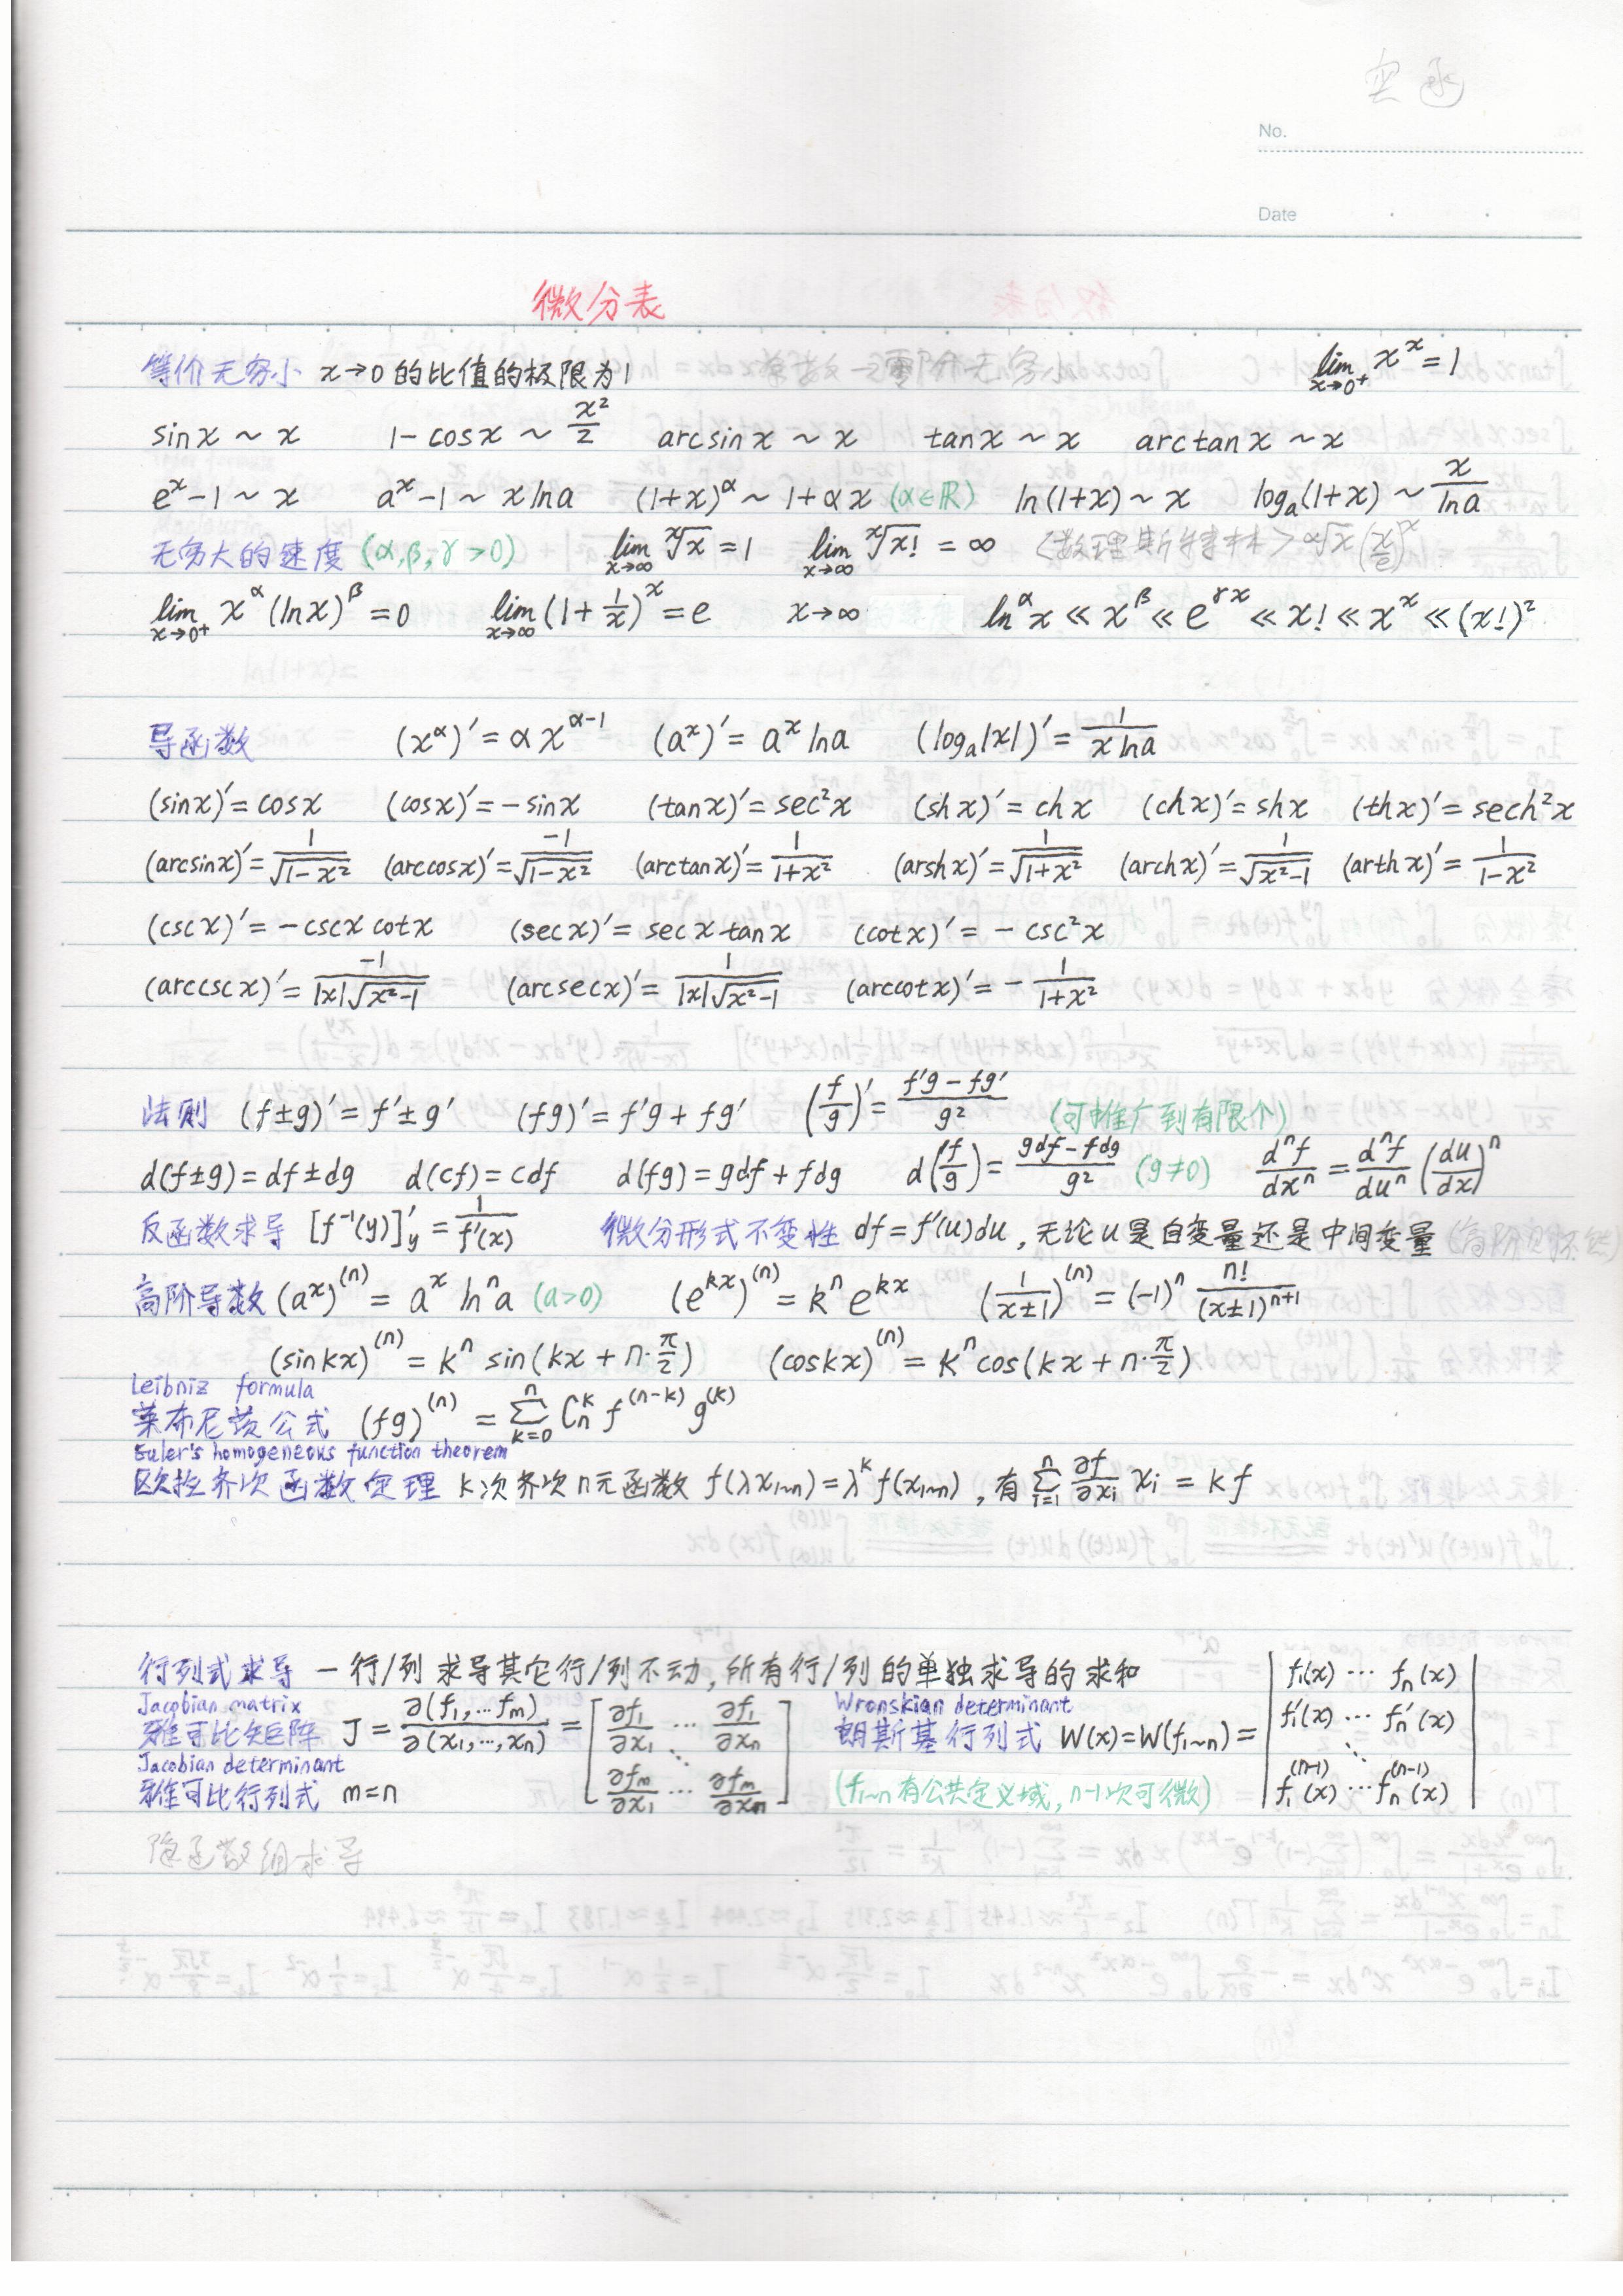 实函
No.
Date
微分表
等价无穷小 x→0 的比值的极限为1 常数—零阶无穷小 lim_{x→0⁺} x^x = 1
sinx ~ x  1-cosx ~ x²/2  arcsinx ~ x  tanx ~ x  arctanx ~ x
e^x-1 ~ x  a^x-1 ~ xlna  (1+x)^α ~ 1+αx (α∈ℝ)  ln(1+x) ~ x  log_a(1+x) ~ x/lna
无穷大的速度 (α,β,γ>0)  lim_{x→∞} ˣ√x = 1  lim_{x→∞} ˣ√x! = ∞  <数理斯特林> α√x (x/e)^x
lim_{x→0⁺} x^α (lnx)^β = 0  lim_{x→∞} (1+1/x)^x = e  x→∞  ln^α x ≪ x^β ≪ e^{γx} ≪ x! ≪ x^x ≪ (x!)²
导函数  (x^α)′ = αx^{α-1}  (a^x)′ = a^x lna  (log_a|x|)′ = 1/(xlna)
(sinx)′ = cosx  (cosx)′ = -sinx  (tanx)′ = sec²x  (shx)′ = chx  (chx)′ = shx  (thx)′ = sech²x
(arcsinx)′ = 1/√(1-x²)  (arccosx)′ = -1/√(1-x²)  (arctanx)′ = 1/(1+x²)  (arshx)′ = 1/√(1+x²)  (archx)′ = 1/√(x²-1)  (arthx)′ = 1/(1-x²)
(cscx)′ = -cscx cotx  (secx)′ = secx tanx  (cotx)′ = -csc²x
(arccscx)′ = -1/(|x|√(x²-1))  (arcsecx)′ = 1/(|x|√(x²-1))  (arccotx)′ = -1/(1+x²)
法则 (f±g)′ = f′±g′  (fg)′ = f′g+fg′  (f/g)′ = (f′g-fg′)/g²  (可推广到有限个)
d(f±g) = df±dg  d(cf) = cdf  d(fg) = gdf+fdg  d(f/g) = (gdf-fdg)/g² (g≠0)  dⁿf/dxⁿ = dⁿf/duⁿ (du/dx)ⁿ
反函数求导 [f⁻¹(y)]′_y = 1/f′(x)  微分形式不变性 df = f′(u)du, 无论u是自变量还是中间变量 (高阶则不然)
高阶导数 (a^x)^{(n)} = a^x lnⁿa (a>0)  (e^{kx})^{(n)} = kⁿe^{kx}  (1/(x±1))^{(n)} = (-1)ⁿ n!/(x±1)^{n+1}
(sinkx)^{(n)} = kⁿ sin(kx+n·π/2)  (coskx)^{(n)} = kⁿcos(kx+n·π/2)
Leibniz formula
莱布尼茨公式 (fg)^{(n)} = ∑_{k=0}^{n} C_n^k f^{(n-k)} g^{(k)}
Euler's homogeneous function theorem
欧拉齐次函数定理 k次齐次n元函数 f(λx_{1~n}) = λ^k f(x_{1~n}), 有 ∑_{i=1}^{n} ∂f/∂x_i x_i = kf
行列式求导 一行/列求导其它行/列不动, 所有行/列的单独求导的求和
Jacobian matrix
雅可比矩阵 J = ∂(f₁,…f_m)/∂(x₁,…,x_n) = [∂f₁/∂x₁ … ∂f₁/∂x_n ⋱ ∂f_m/∂x₁ … ∂f_m/∂x_n]
Jacobian determinant
雅可比行列式 m=n
Wronskian determinant
朗斯基行列式 W(x) = W(f_{1~n}) = |f₁(x) … f_n(x) f₁′(x) … f_n′(x) ⋱ f₁^{(n-1)}(x) … f_n^{(n-1)}(x)|
(f_{1~n}有公共定义域, n-1次可微)
隐函数组求导